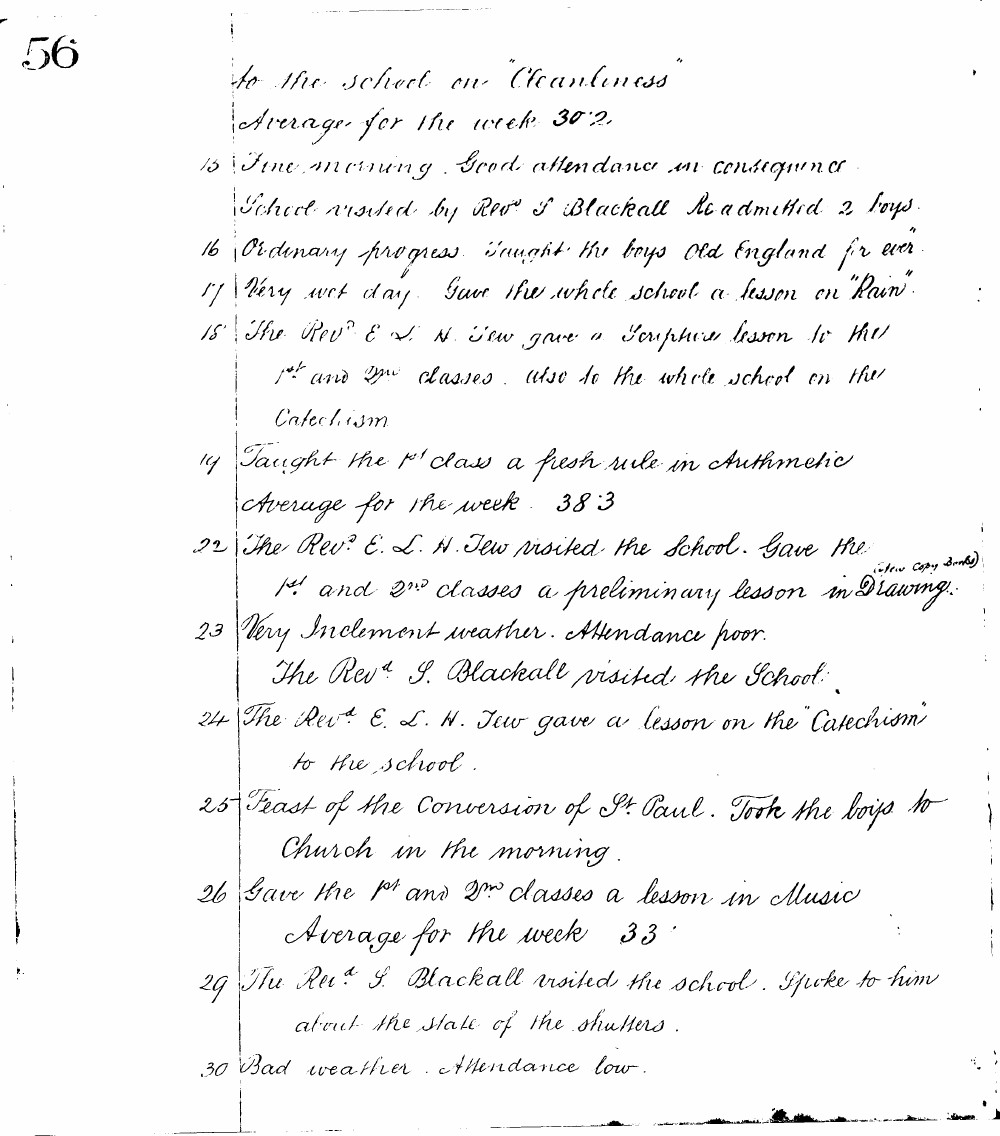 56
to the school on "Cleanliness"
Average for the week 30·2
15 Fine morning. Good attendance in consequence.
School visited by Revd S Blackall Readmitted 2 boys.
16 Ordinary progress. Taught the boys Old England for ever".
17 Very wet day. Gave the whole school a lesson on "Rain".
18 The Revd E L. H. Tew gave a Scripture lesson to the
1st and 2nd classes. also to the whole school on the
Catechism
19 Taught the 1st class a fresh rule in Arithmetic
Average for the week. 38·3
22 The Revd E. L. H. Tew visited the School. Gave the
(New Copy Books)
1st and 2nd classes a preliminary lesson in Drawing.
23 Very Inclement weather. Attendance poor.
The Revd S. Blackall visited the School.
24 The Revd E. L. H. Tew gave a lesson on the "Catechism"
to the school.
25 Feast of the Conversion of St. Paul. Took the boys to
Church in the morning.
26 Gave the 1st and 2nd classes a lesson in Music
Average for the week 33
29 The Revd S. Blackall visited the school. Spoke to him
about the state of the shutters.
30 Bad weather. Attendance low.